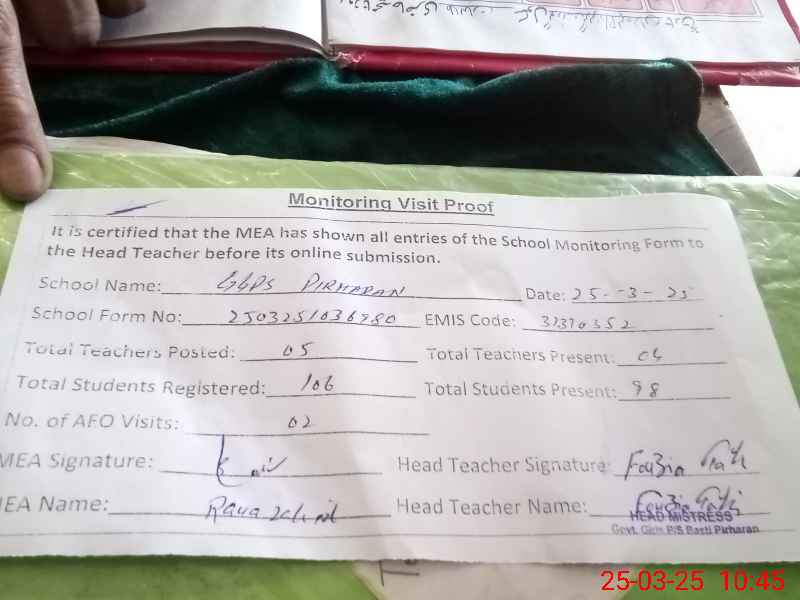 Monitoring Visit Proof
It is certified that the MEA has shown all entries of the School Monitoring Form to
the Head Teacher before its online submission.
School Name: GGPS PIRHARAN Date: 25-3-25
School Form No: 2503251036980 EMIS Code: 31310352
Total Teachers Posted: 05 Total Teachers Present: 04
Total Students Registered: 106 Total Students Present: 98
No. of AEO Visits: 02
MEA Signature: Head Teacher Signature: Fouzia
MEA Name: Head Teacher Name: Fouzia
HEAD MISTRESS
Govt. Girls P/S Basti Pirharan
25-03-25 10:45